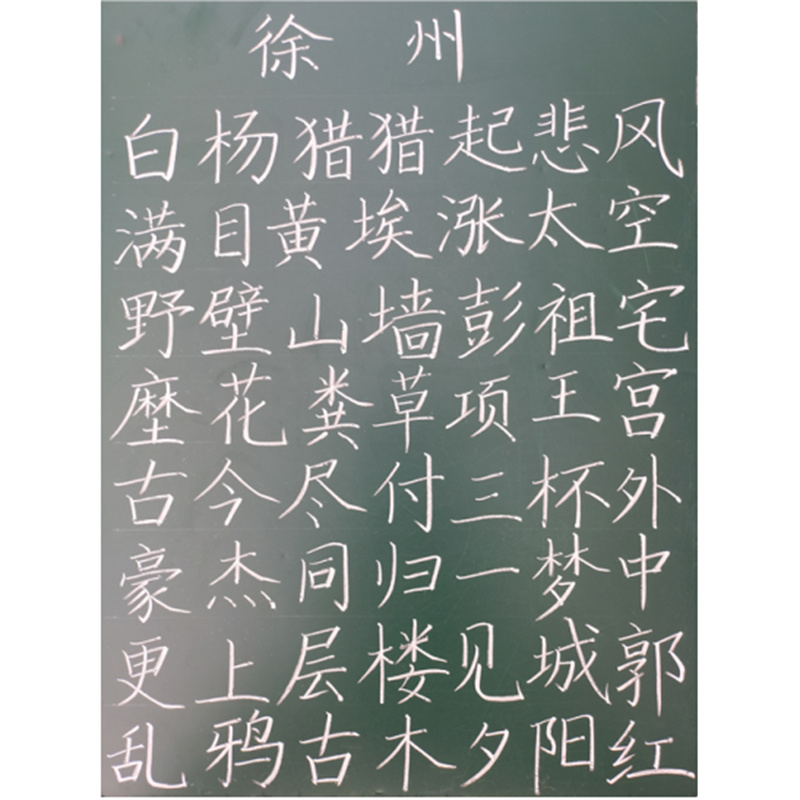 徐州
白杨猎猎起悲风
满目黄埃涨太空
野壁山墙彭祖宅
塺花粪草项王宫
古今尽付三杯外
豪杰同归一梦中
更上层楼见城郭
乱鸦古木夕阳红